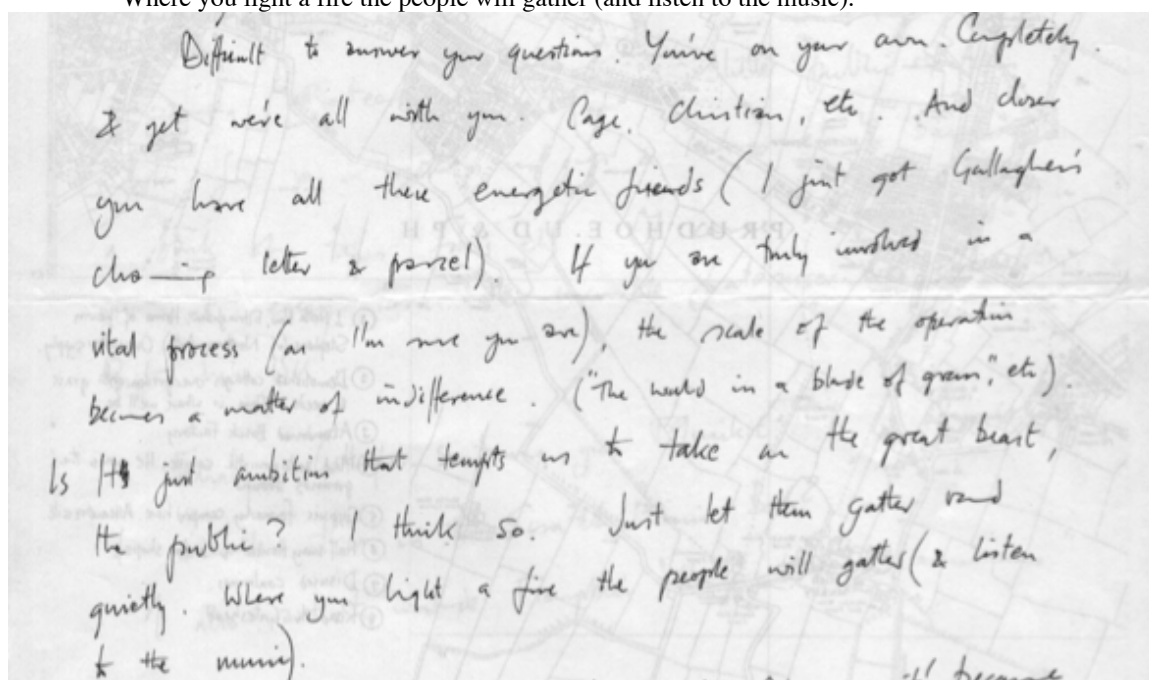 Where you light a fire the people will gather (and listen to the music).
Difficult to answer your questions. You're on your own. Completely.
& yet we're all with you. Cage, Christian, etc. And closer
you have all these energetic friends (I just got Gallagher's
letter & parcel). If you are truly involved in a
vital process (as I'm sure you are), the scale of the operation
becomes a matter of indifference. ("The world in a blade of grass", etc).
Is it just ambition that tempts us to take on the great beast,
the public? I think so. Just let them gather round
quietly. Where you light a fire the people will gather (& listen
to the music).
PRUDHOE. UD & PH